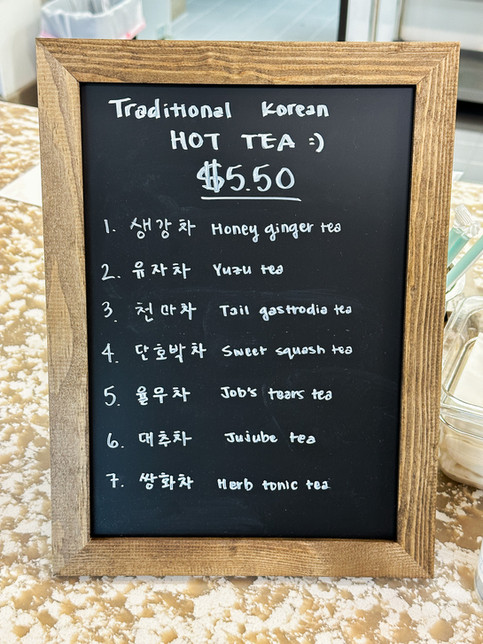 Traditional Korean
HOT TEA :)
$5.50
1. 생강차 Honey ginger tea
2. 유자차 Yuzu tea
3. 천마차 Tail gastrodia tea
4. 단호박차 Sweet squash tea
5. 율무차 Job's tears tea
6. 대추차 Jujube tea
7. 쌍화차 Herb tonic tea